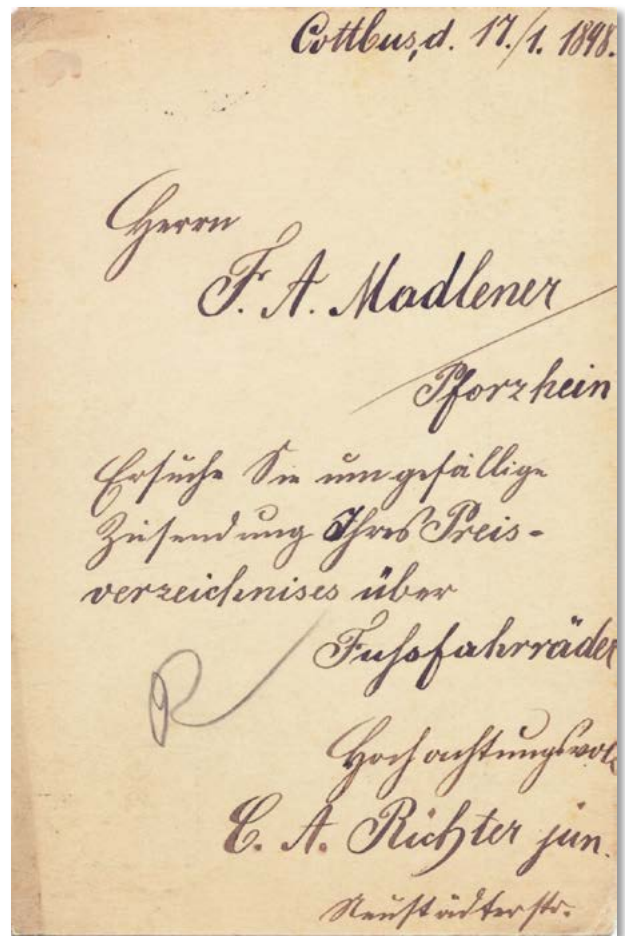 Cottbus, d. 17./1. 1898.
Herrn
F. A. Madlener
Pforzhein
Ersuche Sie um gefällige
Zusendung Ihres Preis-
verzeichnises über
Fussfahrräder
Hochachtungsvoll
C. A. Richter jun.
Neustädterstr.
R